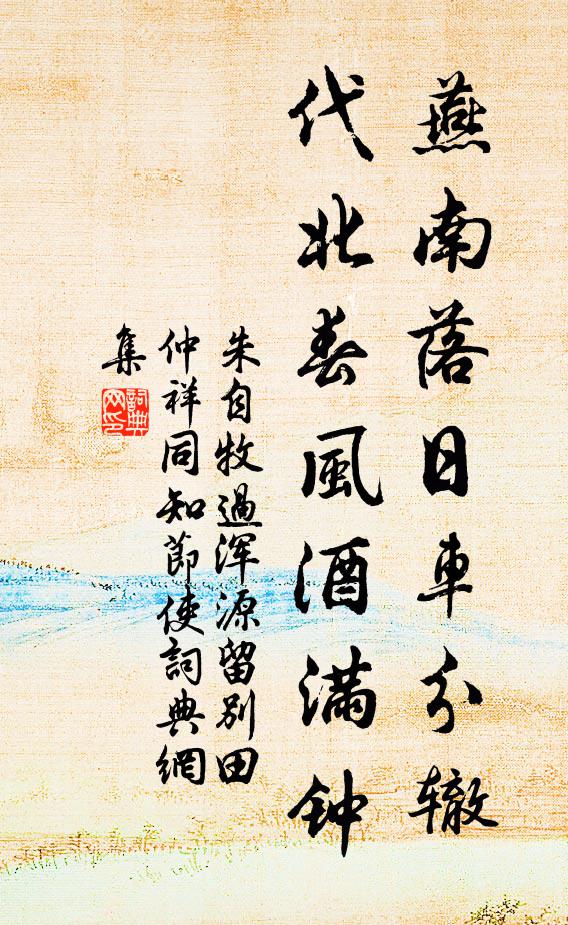 燕南落日車分辙
代北春風酒满钟
朱自牧過浑源留别田
仲祥同知節使詞典網
集
詞典网印